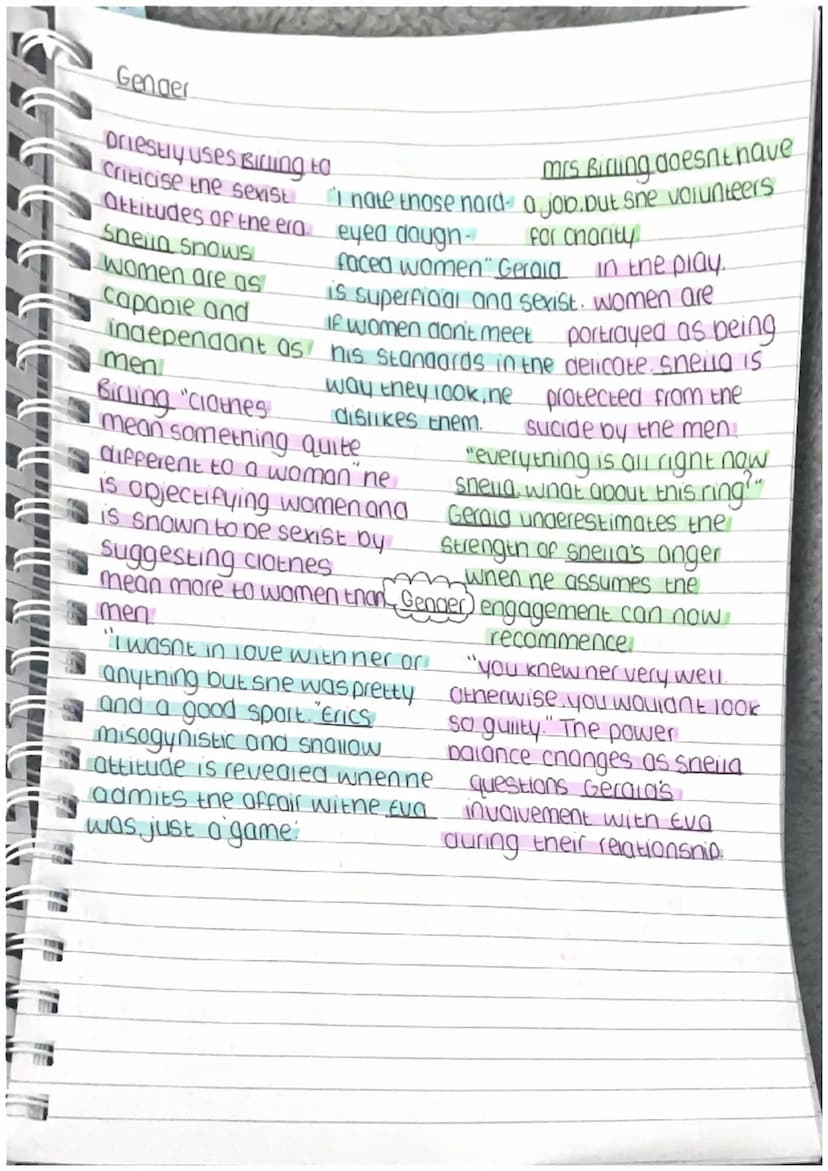 Gender
Priestly uses Birling to
criticise the sexist
attitudes of the era.
Sheila shows
women are as
capable and
independant as
men.
Birling "clothes
mean something quite
different to a woman" he
is objectifying women and
is shown to be sexist by
suggesting clothes
mean more to women than
men.
"I wasnt in love with her or
anything but she was pretty
and a good sport." Erics
misogynistic and shallow
attitude is revealed when he
admits the affair withe Eva
was just a 'game'.
"I hate those hard-
eyed dough-
faced women" Gerald
is superficial and sexist.
If women dont meet
his standards in the
way they look, he
dislikes them.
Gender
Mrs Birling doesnt have
a job, but she volunteers
for charity
In the play,
women are
portrayed as being
delicate. Sheila is
protected from the
sucide by the men.
"everything is all right now
Sheila, what about this ring?"
Gerald underestimates the
strength of Sheila's anger
when he assumes the
engagement can now
recommence.
"you knew her very well.
Otherwise, you wouldnt look
so guilty." The power
balance changes as Sheila
questions Gerald's
involvement with Eva
during their relationship.